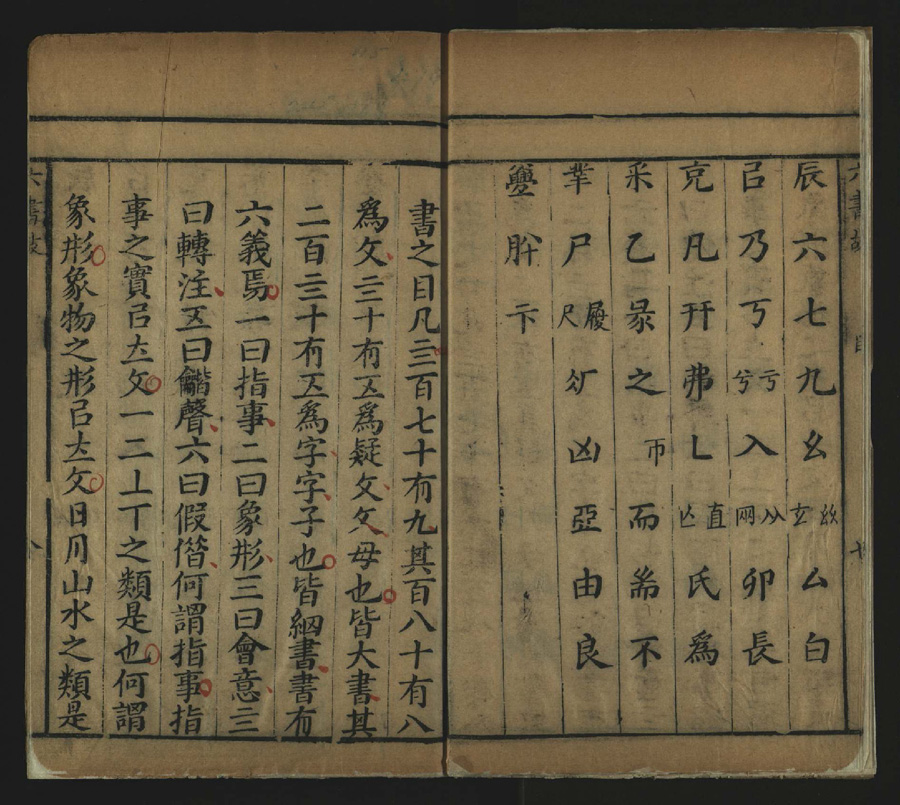 辰六七九幺玄𢆶厶白
㠯乃丂兮亏入网从卯長
克凡幵弗乚亾直氏為
釆乙彔之帀而㡀不
丵尸尺履凶亞由良
㸑肸卞
書之目凡亖百七十有九其百八十有八
爲文亖十有㐅爲疑文文母也皆大書其
二百亖十有㐅爲字字子也皆細書書有
六義焉一曰指事二曰象形三曰會意亖
曰轉注㐅曰龤聲六曰假借何謂指事指
事之實㠯立文一二丄丅之類是也何謂
象形象物之形㠯立文日月山水之類是